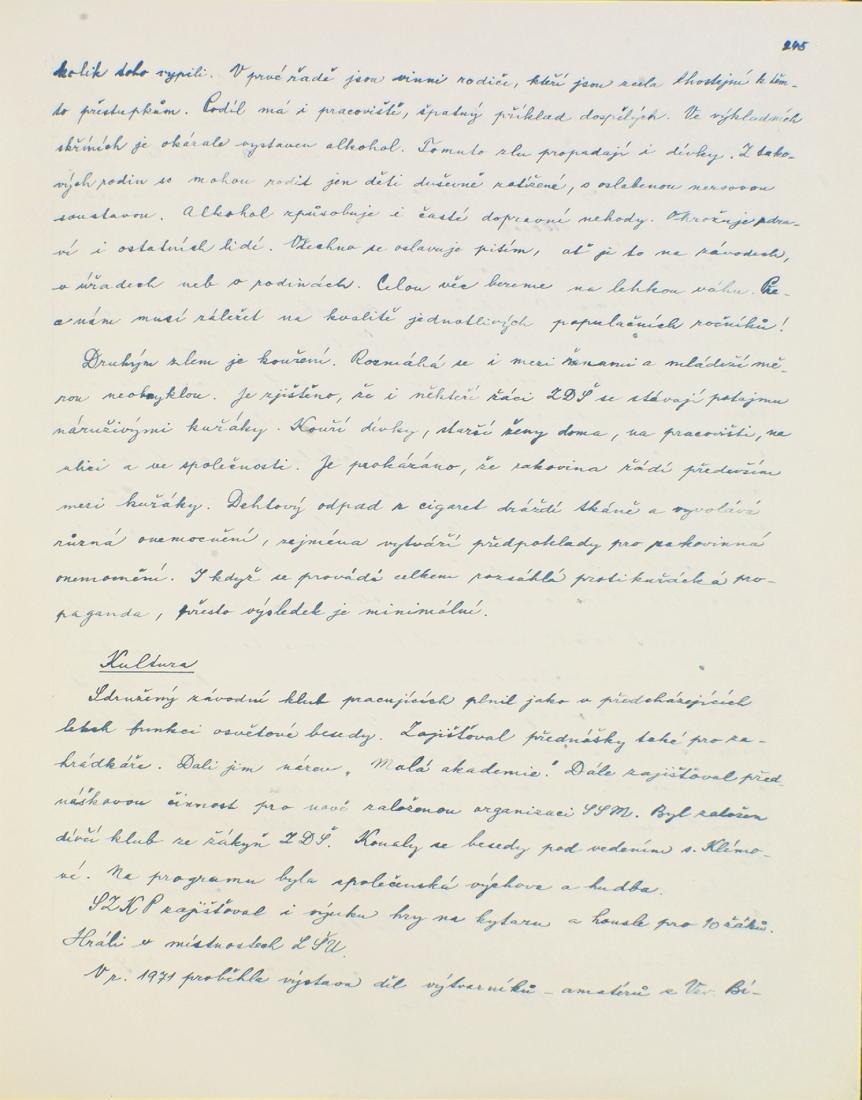 245
kolik toho vypili. V prvé řadě jsou vinni rodiče, kteří jsou zcela lhostejní k těm-
to přestupkům. Podíl má i pracoviště, špatný příklad dospělých. Ve výkladních
skříních je okázale vystaven alkohol. Tomuto zlu propadají i dívky. Z tako-
vých rodin se mohou rodit jen děti duševně zatížené, s oslabenou nervovou
soustavou. Alkohol způsobuje i časté dopravní nehody. Ohrožuje zdra-
ví i ostatních lidí. Všechno se oslavuje pitím, ať je to na závodech,
v úřadech neb v rodinách. Celou věc bereme na lehkou váhu.
a nám musí záležet na kvalitě jednotlivých populačních ročníků!
Druhým zlem je kouření. Rozmáhá se i mezi ženami a mládeží mě-
rou neobvyklou. Je zjištěno, že i někteří žáci ZDŠ se stávají potajmu
náruživými kuřáky. Kouří dívky, starší ženy doma, na pracovišti, na
ulici a ve společnosti. Je prokázáno, že rakovina řádí především
mezi kuřáky. Dehtový odpad z cigaret dráždí tkáně a vyvolává
různá onemocnění, zejména vytváří předpoklady pro rakovinná
onemocnění. I když se provádí celkem rozsáhlá protikuřácká pro-
paganda, přesto výsledek je minimální.
Kultura
Sdružený závodní klub pracujících plnil jako v předcházejících
letech funkci osvětové besedy. Zajišťoval přednášky také pro za-
hrádkáře. Dali jim název „Malá akademie". Dále zajišťoval před-
náškovou činnost pro nově založenou organizaci SSM. Byl založen
dívčí klub ze žákyň ZDŠ. Konaly se besedy pod vedením s. Klímo-
vé. Na programu byla společenská výchova a hudba.
SZKP zajišťoval i výuku hry na kytaru a housle pro 10 žáků.
Hráli v místnostech LŠU.
V r. 1971 proběhla výstava děl výtvarníků - amatérů z Vsv. Bí-